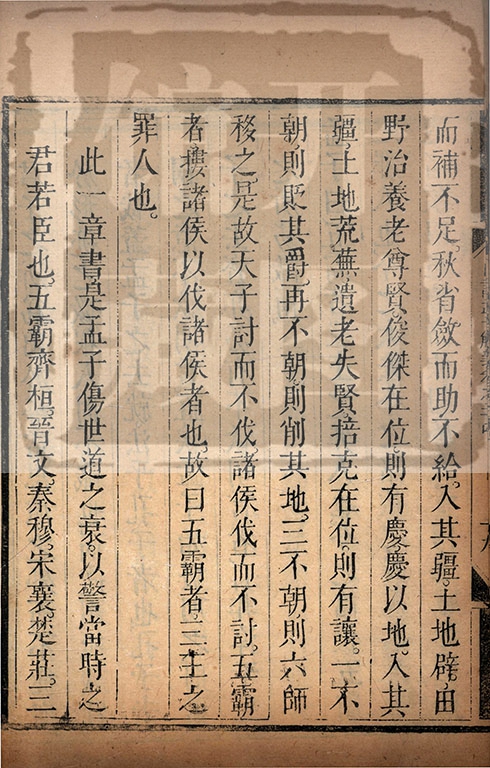 而補不足。秋省斂而助不給。入其疆。土地辟。田
野治養老尊賢。俊傑在位。則有慶。慶以地。入其
疆。土地荒蕪遺老失賢掊克在位。則有讓。一不
朝。則貶其爵。再不朝。則削其地。三不朝則六師
移之。是故天子討而不伐。諸侯伐而不討。五霸
者。摟諸侯以伐諸侯者也。故曰五霸者。三王之
罪人也。
此一章書是孟子傷世道之衰。以警當時之
君若臣也。五霸齊桓。晉文。秦穆。宋襄。楚莊。三